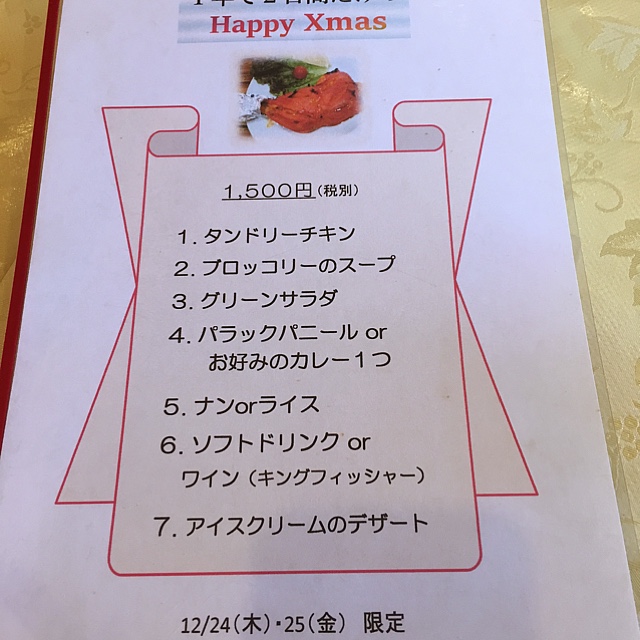 Happy Xmas
1,500円(税別)
1. タンドリーチキン
2. ブロッコリーのスープ
3. グリーンサラダ
4. パラックパニール or
お好みのカレー1つ
5. ナンorライス
6. ソフトドリンク or
ワイン(キングフィッシャー)
7. アイスクリームのデザート
12/24(木)・25(金) 限定